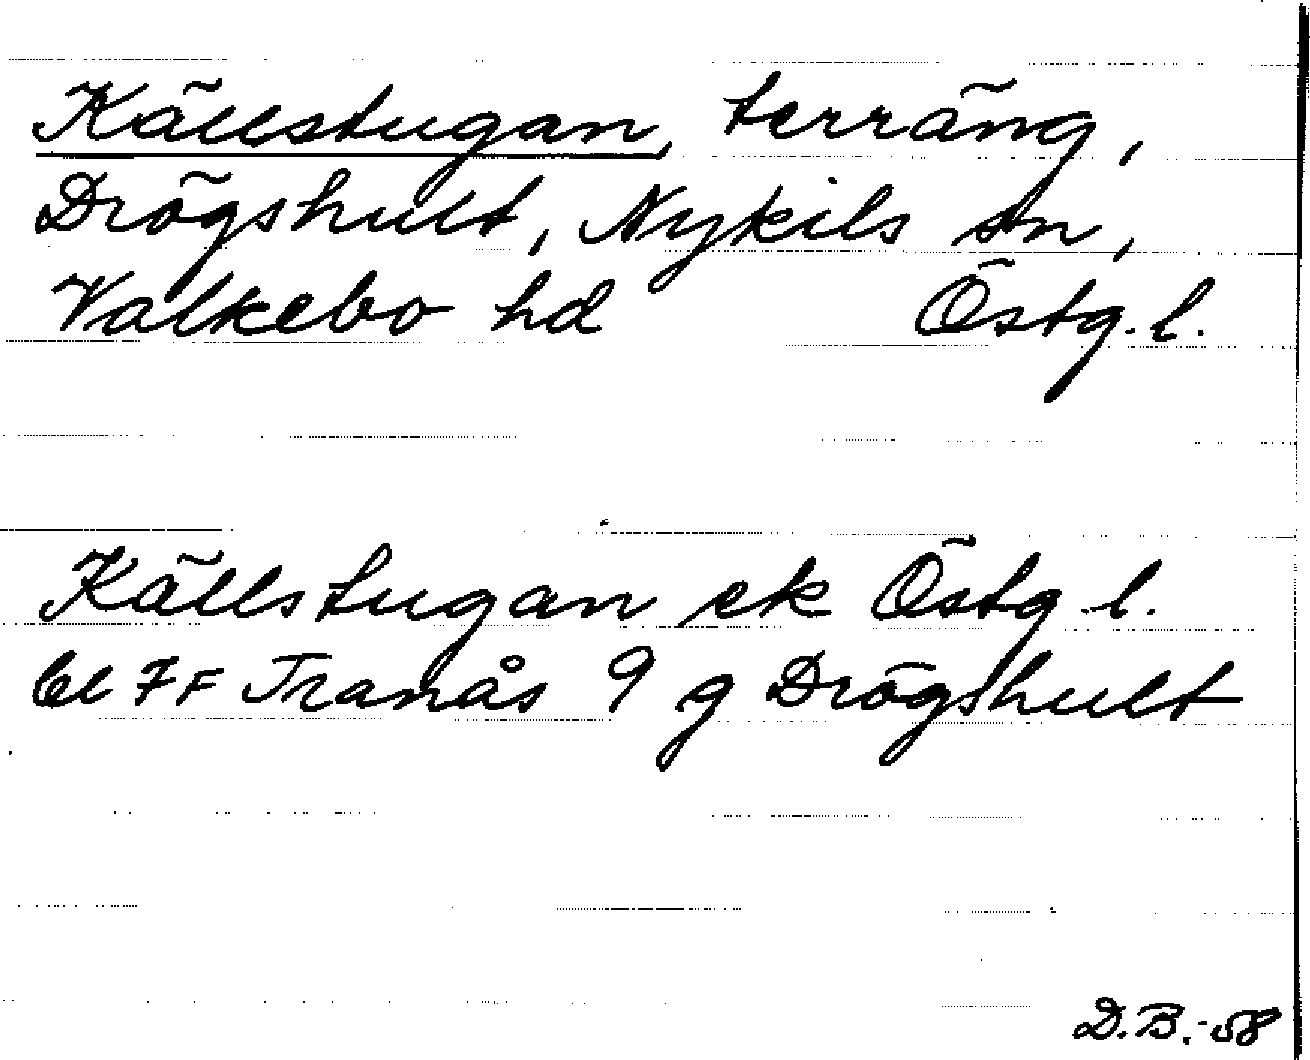 Källstugan, terräng,
Drögshult, Nykils sn,
Valkebo hd Östg. l.
Källstugan ek Östg. l.
bl 7F Tranås 9 g Drögshult
D.B.-58